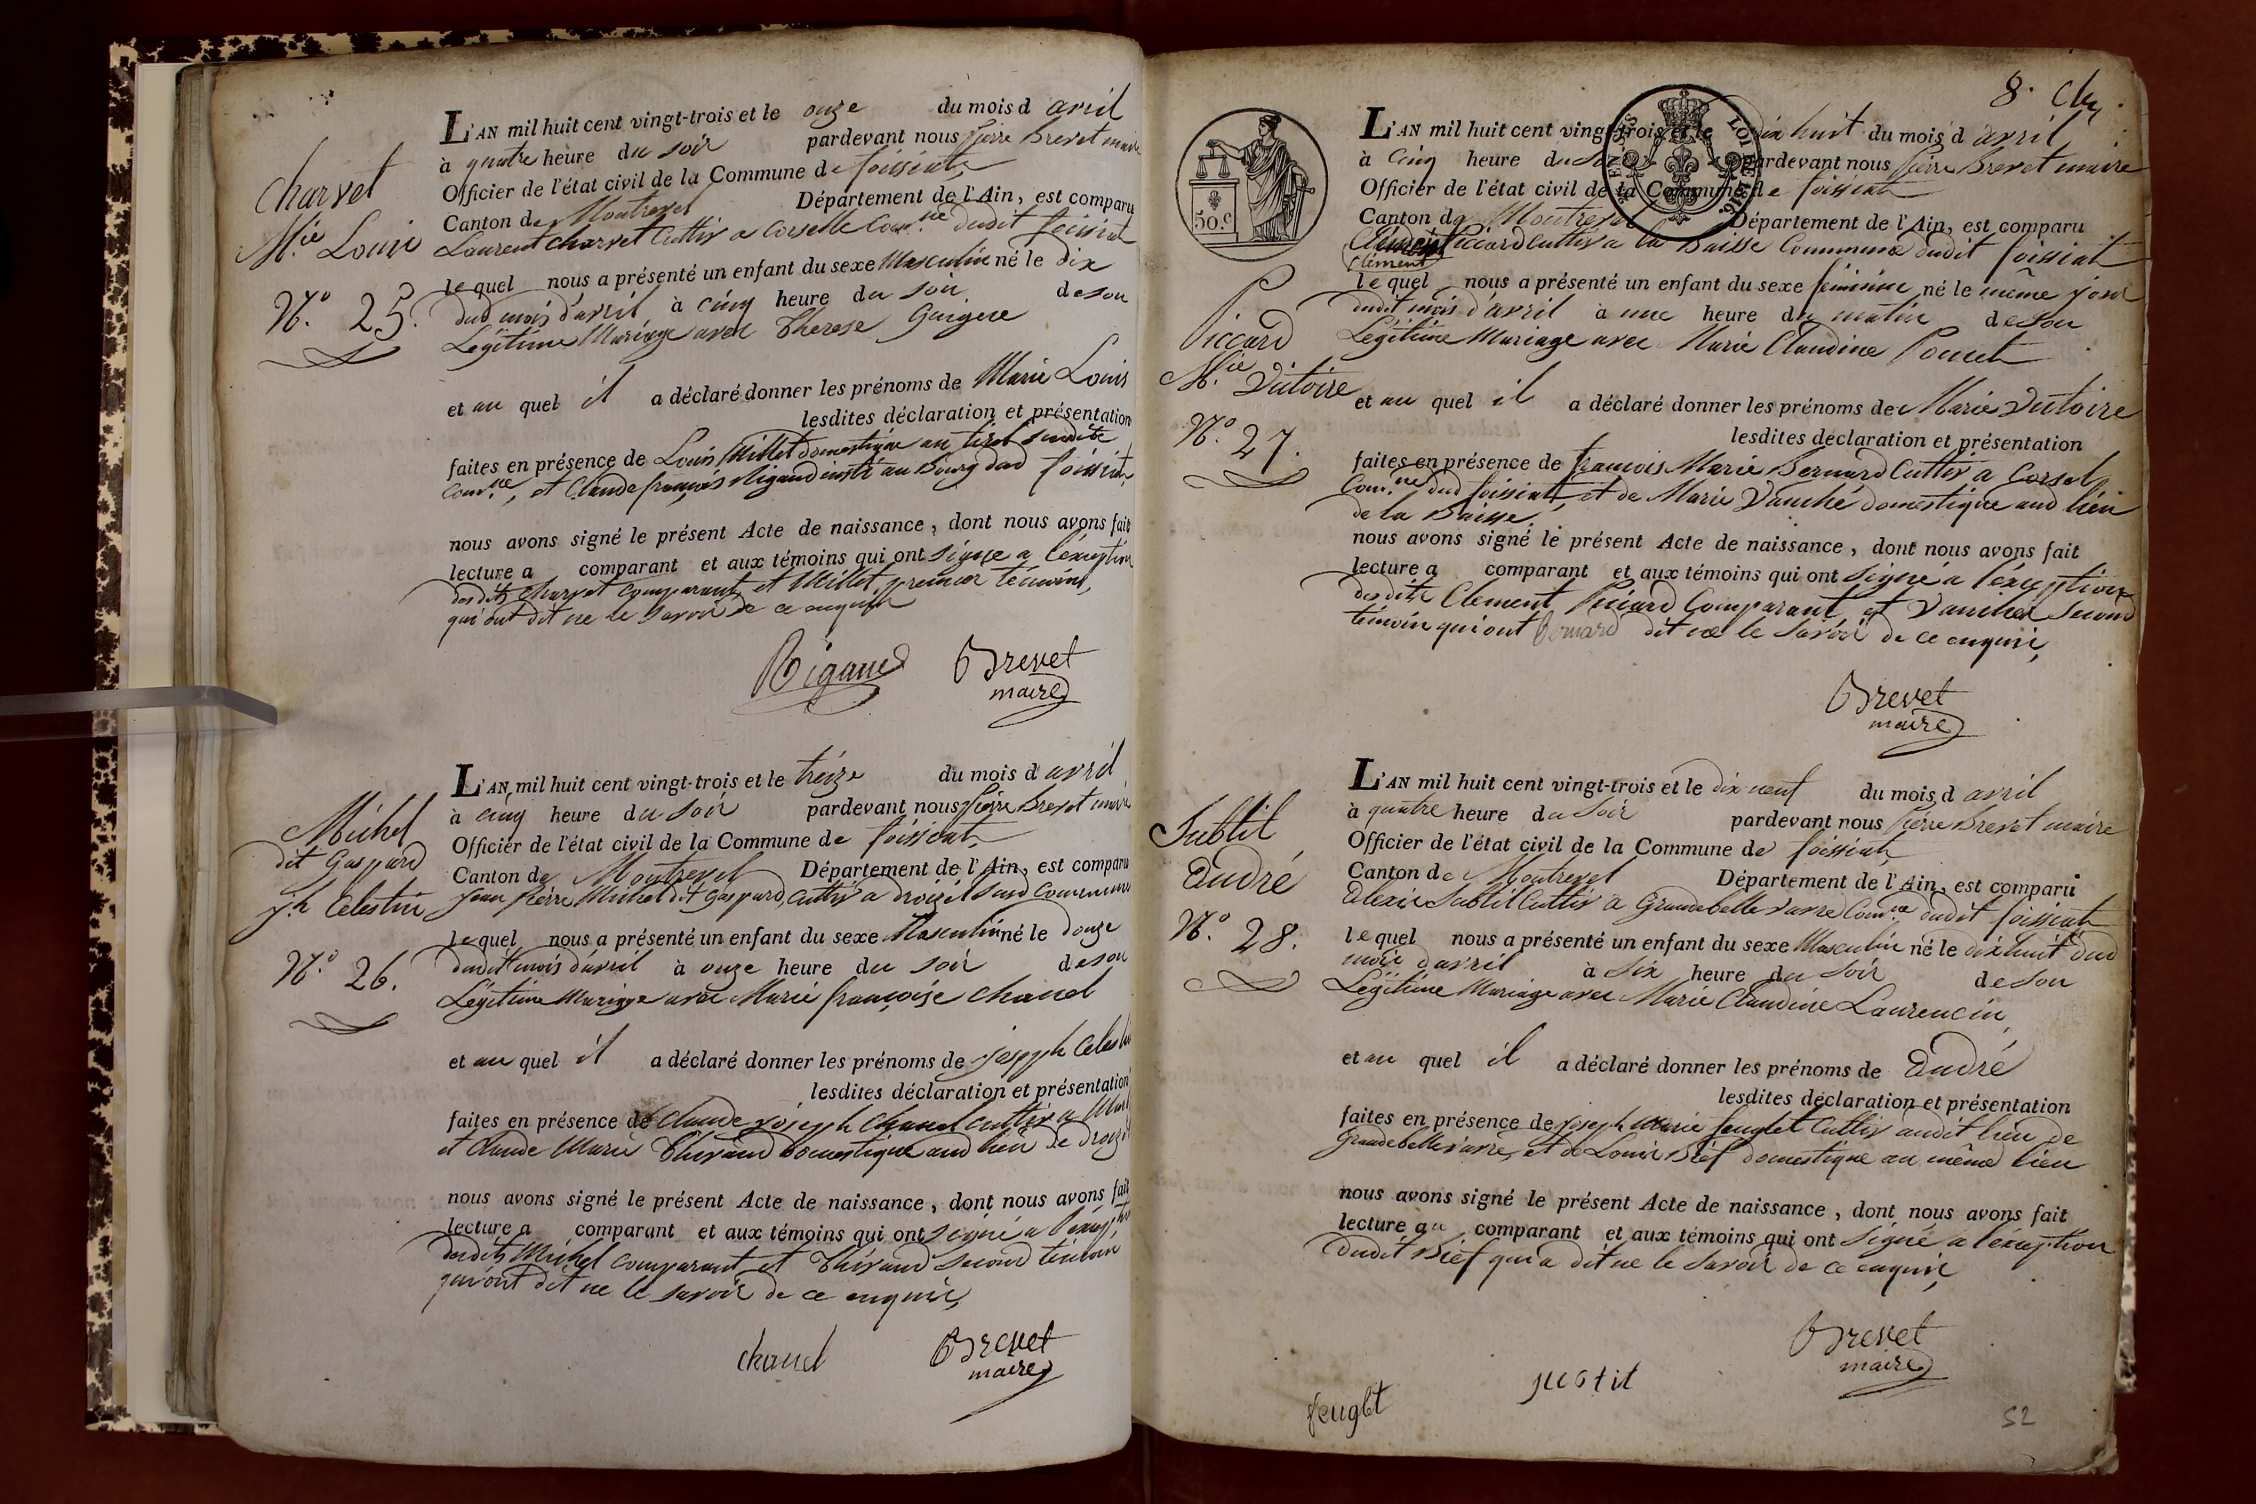 charvet
Mie Louis
N.o 25.
L'AN mil huit cent vingt-trois et le onze du mois d avril
à quatre heure du soir pardevant nous pierre Brevet maire
Officier de l'état civil de la Commune de foissiat
Canton de Montrevel Département de l'Ain, est comparu
Laurent charvet Cultiv a Corselle Comne dudit foissiat
lequel nous a présenté un enfant du sexe Masculin né le dix
dud mois d'avril à cinq heure du soir de son
Légitime Mariage avec Therese Guigue
et au quel il a déclaré donner les prénoms de Marie Louis
lesdites déclaration et présentation
faites en présence de Louis Millet domestique au tirol susdite
Comne, et Claude françois Rigaud instr au Bourg dud foissiat
nous avons signé le présent Acte de naissance, dont nous avons fait
lecture a comparant et aux témoins qui ont signe a l'exception
desdits charvet comparant et Millet premier témoins,
qui ont dit ne le savoir de ce enquis
Rigaud Brevet
maire
Michel
dit Gaspard
jh Celestin
N.o 26.
L'AN mil huit cent vingt-trois et le treize du mois d avril
à cinq heure du soir pardevant nous pierre Brevet maire
Officier de l'état civil de la Commune de foissiat
Canton de Montrevel Département de l'Ain, est comparu
Jean pierre Michel dit Gaspard, cultiv a droizel susd Commune
lequel nous a présenté un enfant du sexe Masculin né le douze
dudit mois d'avril à onze heure du soir de son
Légitime Mariage avec Marie françoise chanel
et au quel il a déclaré donner les prénoms de joseph Celestin
lesdites déclaration et présentation
faites en présence de claude joseph chanel cultiv a
et claude Marie Thévand domestique aud lieu de droizel
nous avons signé le présent Acte de naissance, dont nous avons fait
lecture a comparant et aux témoins qui ont signé a
desdits Michel comparant et Thévand second témoin
qui ont dit ne le savoir de ce enquis,
chanel Brevet
maire
8.
50.c
LOI DE 1816
Piccard
Mie Victoire
N.o 27.
L'AN mil huit cent vingt-trois et le dix huit du mois d avril
à Cinq heure du soir pardevant nous pierre Brevet maire
Officier de l'état civil de la Commune de foissiat
Canton de Montrevel Département de l'Ain, est comparu
Piccard cultiv a la Baisse Commune dudit foissiat
Clément
lequel nous a présenté un enfant du sexe féminine né le même jour
dudit mois d'avril à une heure du matin de son
Légitime Mariage avec Marie Claudine Poncet
et au quel il a déclaré donner les prénoms de Marie Victoire
lesdites déclaration et présentation
faites en présence de françois Marie Bernard Cultiv a Corsel
Comne dud foissiat, et de Marie Vauché domestique aud lieu
de la Baisse,
nous avons signé le présent Acte de naissance, dont nous avons fait
lecture a comparant et aux témoins qui ont signé a l'exception
desdits Clement Piccard Comparant et Vauché second
témoin qui ont Bernard dit ne le savoir de ce enquis,
Brevet
maire
Subtil
André
N.o 28.
L'AN mil huit cent vingt-trois et le dix neuf du mois d avril
à quatre heure du soir pardevant nous pierre Brevet maire
Officier de l'état civil de la Commune de foissiat
Canton de Montrevel Département de l'Ain, est comparu
Alexis Subtil Cultiv a Grandebellevavre Comne dudit foissiat
lequel nous a présenté un enfant du sexe Masculin né le dix huit dud
mois d'avril à Six heure du Soir de son
Légitime Mariage avec Marie Claudine Laurencin
et au quel il a déclaré donner les prénoms de André
lesdites déclaration et présentation
faites en présence de joseph Marie feuglet Cultiv audit lieu de
Grandebellevavre, et de Louis Bief domestique au même lieu
nous avons signé le présent Acte de naissance, dont nous avons fait
lecture au comparant et aux témoins qui ont Signé a l'exception
dudit Bief qui a dit ne le savoir de ce enquis,
Brevet
maire
feuglet
52